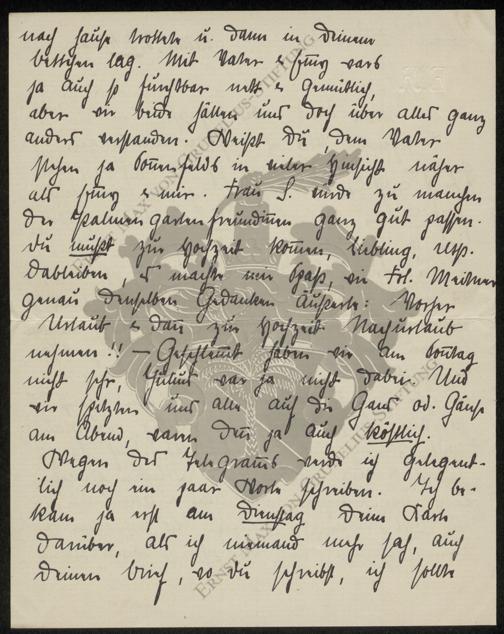 nach Hause trottete u. dann in Deinem
Bettchen lag. Mit Vater & war's
ja auch so furchtbar nett & gemütlich,
aber wir beide hätten uns doch über alles ganz
anders verstanden. Weißt Du, dem Vater
stehen ja Sonnenfelds in vieler Hinsicht näher
als & mir. Frau S. würde zu manchen
der Palmengartenfreundinnen ganz gut passen.
Du mußt zur Hochzeit kommen, Liebling, resp.
dableiben, es machte mir Spaß, wie Frl. Meißner
genau denselben Gedanken äußerte: Vorher
Urlaub & dann zur Hochzeit Nachurlaub
nehmen!! – Geschlemmt haben wir am Sonntag
nicht sehr, war ja nicht dabei. Und
wir spitzten uns alle auf die Gans od. Gänse
am Abend, waren denn ja auch köstlich.
Wegen des Telegramms werde ich gelegent-
lich noch ein paar Worte schreiben. Ich be-
kam ja erst am Dienstag Deine Karte
darüber, als ich niemand mehr sah, auch
Deinen Brief, wo Du schreibst, ich sollte
ERNST MAX VON GRUNELIUS-STIFTUNG
ERNST MAX VON GRUNELIUS-STIFTUNG